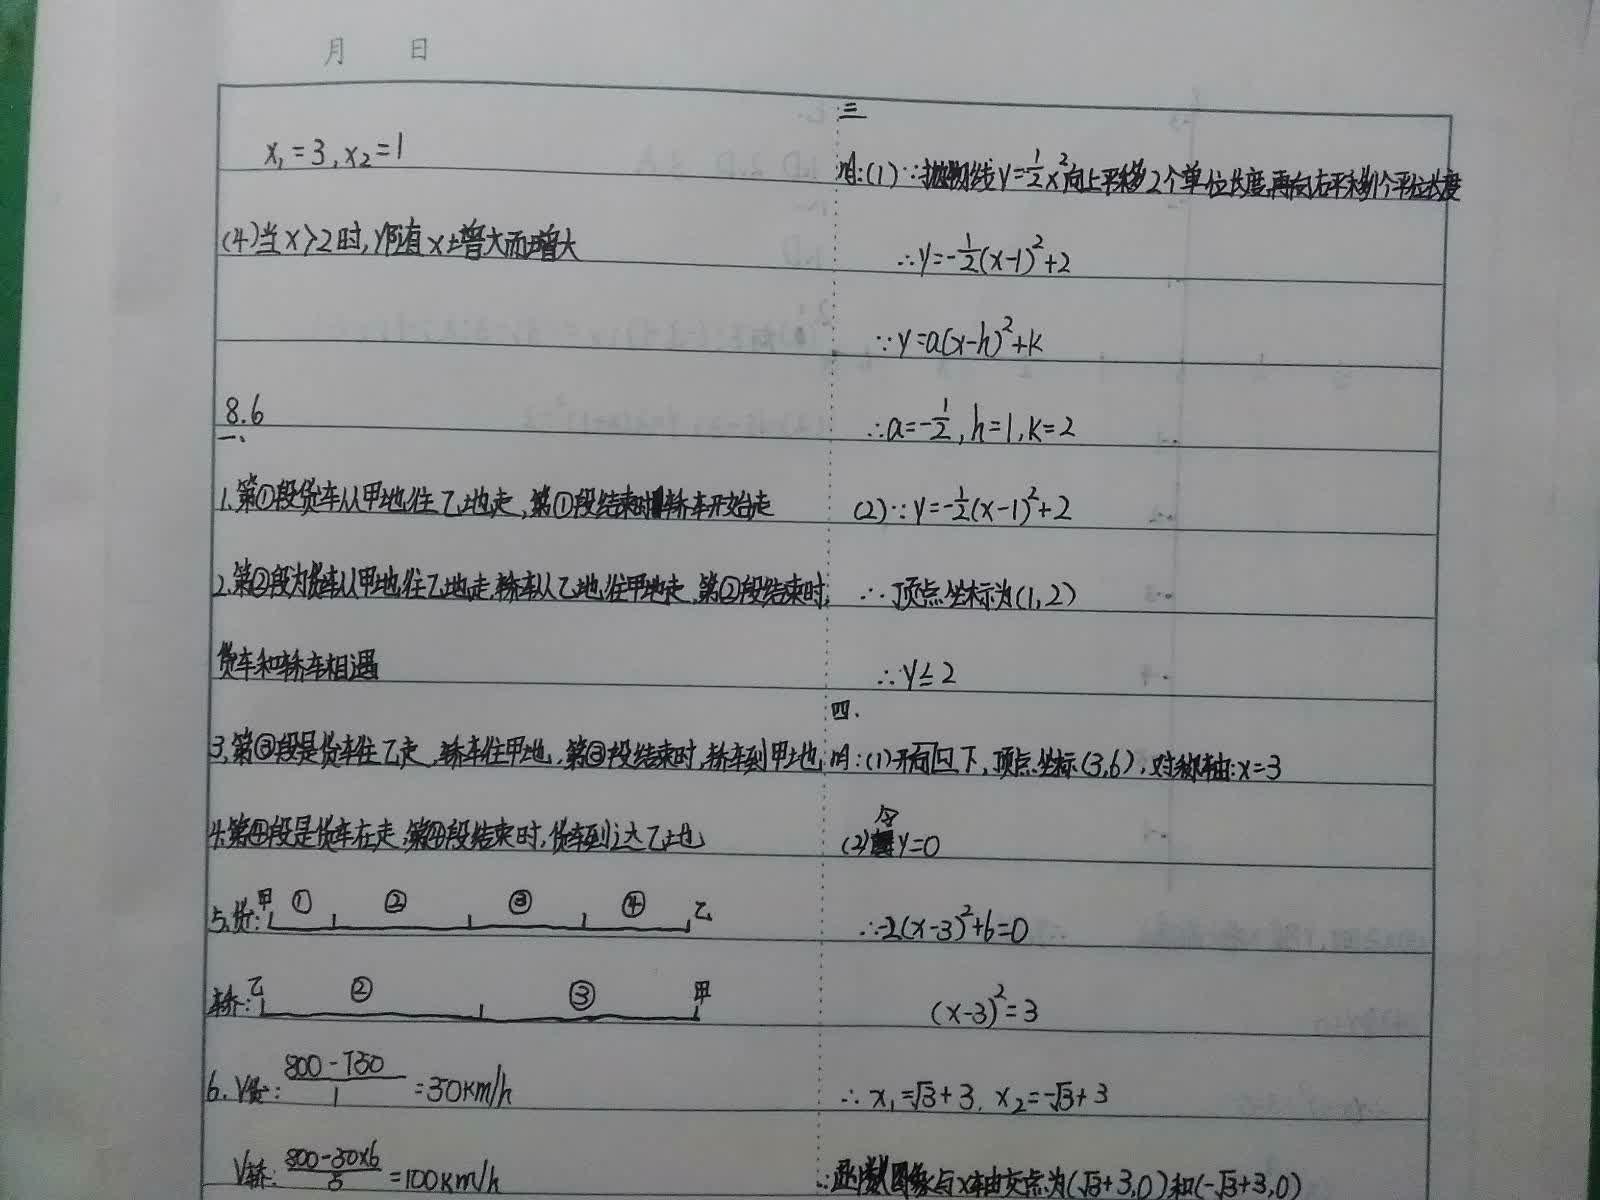 月 日
x₁=3,x₂=1
(4)当x>2时,y随着x增大而增大
8.6
一、
1.第①段货车从甲地往乙地走,第①段结束时轿车开始走
2.第②段为货车从甲地往乙地走,轿车从乙地往甲地走,第②段结束时,
货车和轿车相遇
3.第③段是货车往乙走,轿车往甲地,第③段结束时,轿车到甲地
4.第④段是货车在走,第④段结束时,货车到达乙地
5.货: 甲 ① ② ③ ④ 乙
轿: 乙 ② ③ 甲
6. V货: (800-750)/1 =50km/h
V轿: (800-50×6)/5 =100km/h
三
解:(1)∵抛物线y=½x²向上平移2个单位长度,再向右平移1个单位长度
∴y=-½(x-1)²+2
∵y=a(x-h)²+k
∴a=-½,h=1,k=2
(2)∵y=-½(x-1)²+2
∴顶点坐标为(1,2)
∴y≤2
四.
解:(1)开口向下,顶点坐标(3,6),对称轴:x=3
(2)令y=0
∴-2(x-3)²+6=0
(x-3)²=3
∴x₁=√3+3, x₂=-√3+3
∴此函数图象与x轴交点为(√3+3,0)和(-√3+3,0)